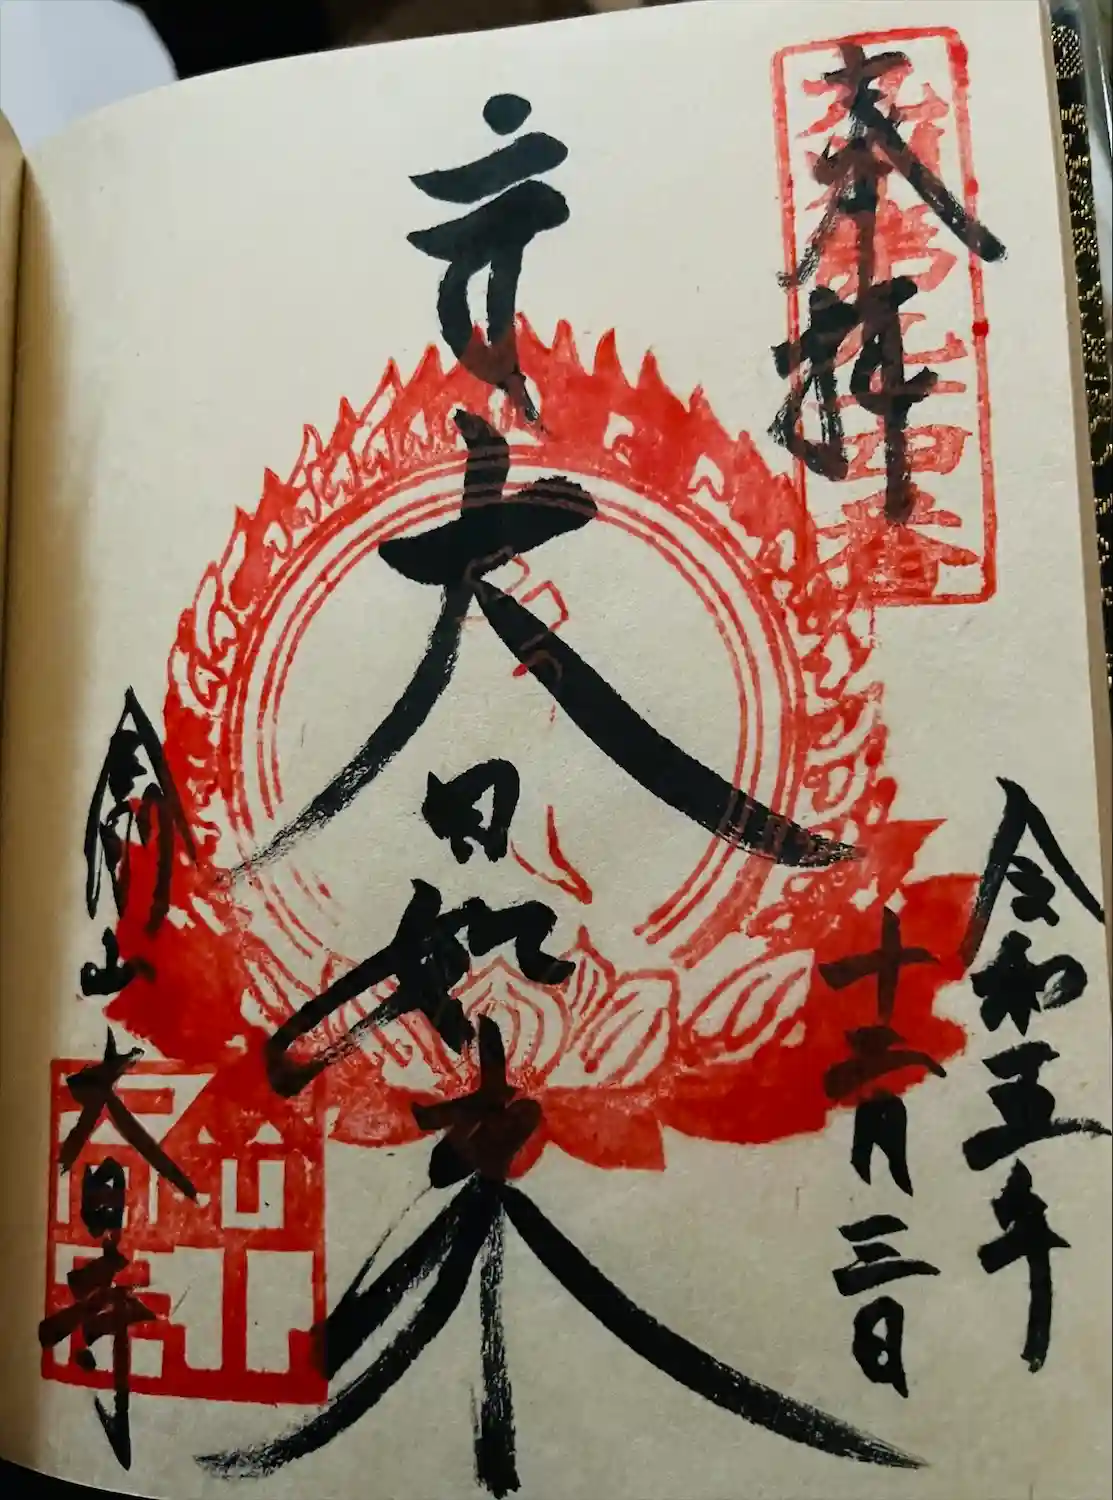 奉拝
令和五年
十二月三日
大日如来
金剛山大日寺